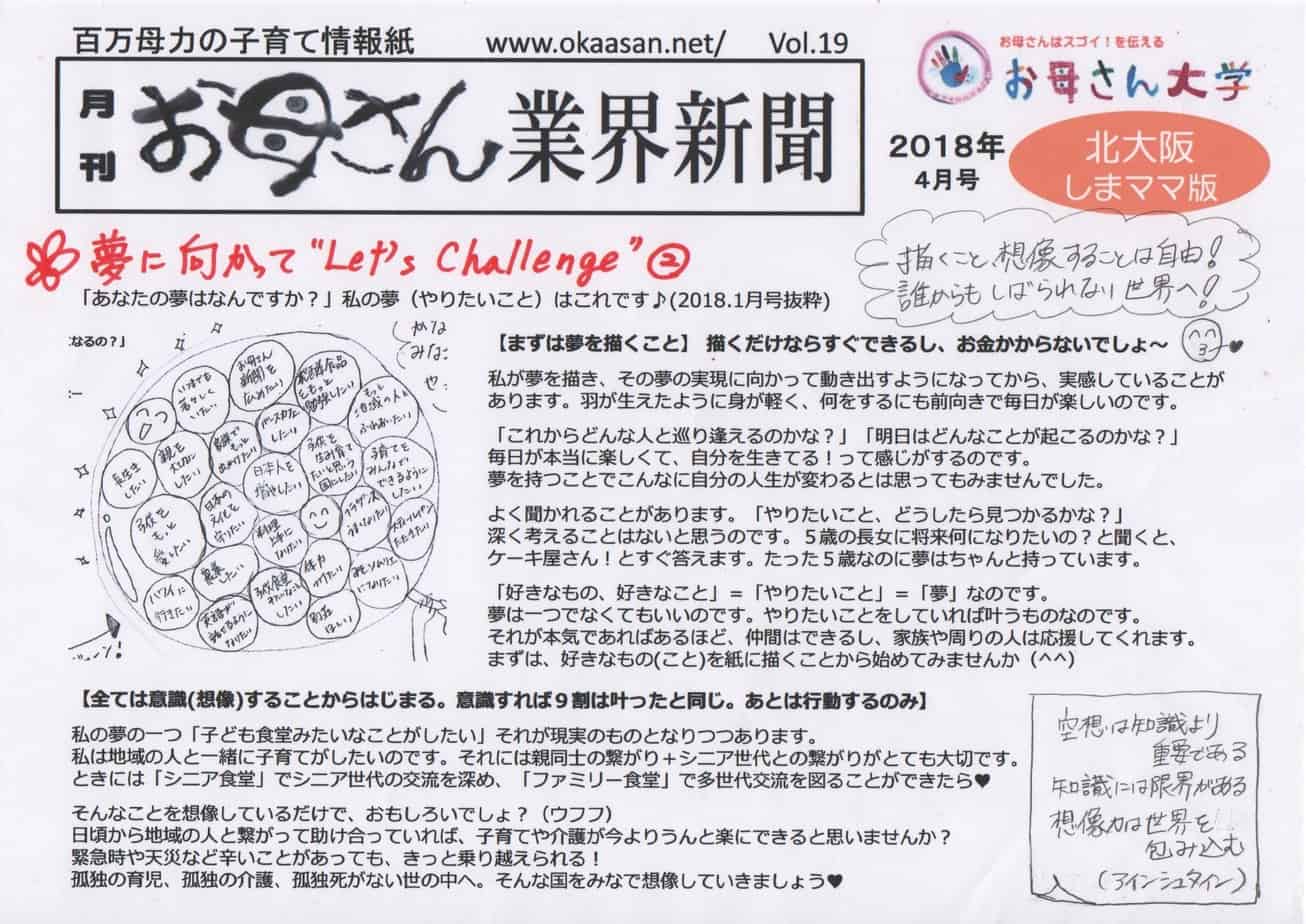 百万母力の子育て情報紙 www.okaasan.net/ Vol.19
お母さんはスゴイ！を伝える
お母さん大学
月刊 お母さん業界新聞
2018年
4月号
北大阪
しまママ版
夢に向かって"Let's Challenge"②
描くこと、想像することは自由！
誰からもしばられない世界へ！
「あなたの夢はなんですか？」私の夢（やりたいこと）はこれです♪(2018.1月号抜粋)
なるの？」
いつまでも
若々しく
いたい
お母さん
新聞を
広めたい
もっと
地域の人と
ふれあいたい
長生き
したい
親を
大切に
したい
日本人を
増やしたい
子育てを
みんなで
できるように
したい
子供を
もっと
愛したい
日本の
文化を
守りたい
料理
上手に
なりたい
農業
したい
体力
つけたい
ハワイに
行きたい
子供食堂
みたいなこと
したい
【まずは夢を描くこと】 描くだけならすぐできるし、お金かからないでしょ〜
私が夢を描き、その夢の実現に向かって動き出すようになってから、実感していることが
あります。羽が生えたように身が軽く、何をするにも前向きで毎日が楽しいのです。
「これからどんな人と巡り逢えるのかな？」「明日はどんなことが起こるのかな？」
毎日が本当に楽しくて、自分を生きてる！って感じがするのです。
夢を持つことでこんなに自分の人生が変わるとは思ってもみませんでした。
よく聞かれることがあります。「やりたいこと、どうしたら見つかるかな？」
深く考えることはないと思うのです。５歳の長女に将来何になりたいの？と聞くと、
ケーキ屋さん！とすぐ答えます。たった５歳なのに夢はちゃんと持っています。
「好きなもの、好きなこと」＝「やりたいこと」＝「夢」なのです。
夢は一つでなくてもいいのです。やりたいことをしていれば叶うものなのです。
それが本気であればあるほど、仲間はできるし、家族や周りの人は応援してくれます。
まずは、好きなもの(こと)を紙に描くことから始めてみませんか（^^）
【全ては意識(想像)することからはじまる。意識すれば９割は叶ったと同じ。あとは行動するのみ】
私の夢の一つ「子ども食堂みたいなことがしたい」それが現実のものとなりつつあります。
私は地域の人と一緒に子育てがしたいのです。それには親同士の繋がり＋シニア世代との繋がりがとても大切です。
ときには「シニア食堂」でシニア世代の交流を深め、「ファミリー食堂」で多世代交流を図ることができたら♥
そんなことを想像しているだけで、おもしろいでしょ？（ウフフ）
日頃から地域の人と繋がって助け合っていれば、子育てや介護が今よりうんと楽にできると思いませんか？
緊急時や天災など辛いことがあっても、きっと乗り越えられる！
孤独の育児、孤独の介護、孤独死がない世の中へ。そんな国をみなで想像していきましょう♥
空想は知識より
重要である
知識には限界がある
想像力は世界を
包み込む
（アインシュタイン）